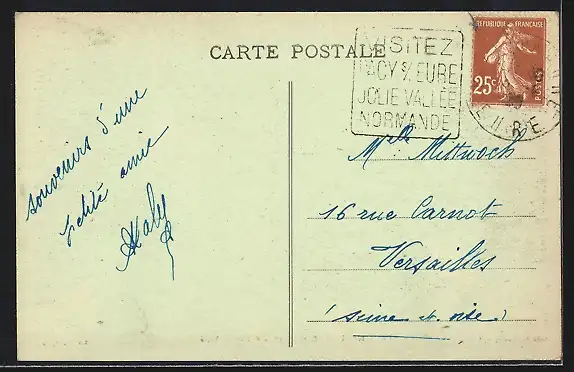 CARTE POSTALE
VISITEZ
PACY S/ EURE
JOLIE VALLÉE
NORMANDE
REPUBLIQUE FRANÇAISE
25c
POSTES
EURE
souvenirs d'une
petite amie
Mlle Mittwoch
16 rue Carnot
Versailles
(seine et oise)